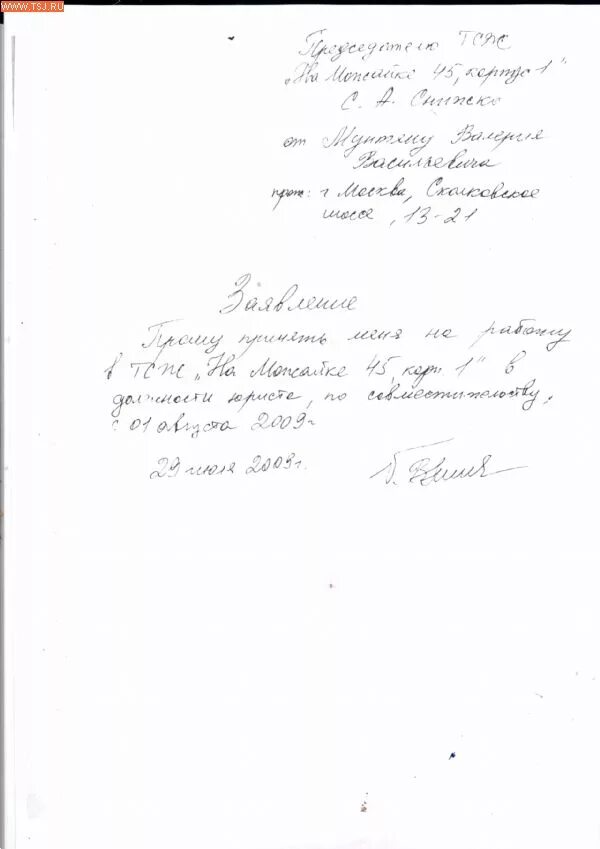 WWW.TSJ.RU
Председателю ТСЖ
„На Можайке 45, корпус 1"
С. А.
от Мунтяну Валерия
Васильевича
прож: г Москва, Сколковское
шоссе, 13-21
Заявление
Прошу принять меня на работу
в ТСЖ „На Можайке 45, корп. 1" в
должности юриста, по совместительству,
с 01 августа 2009г
29 июля 2009г.